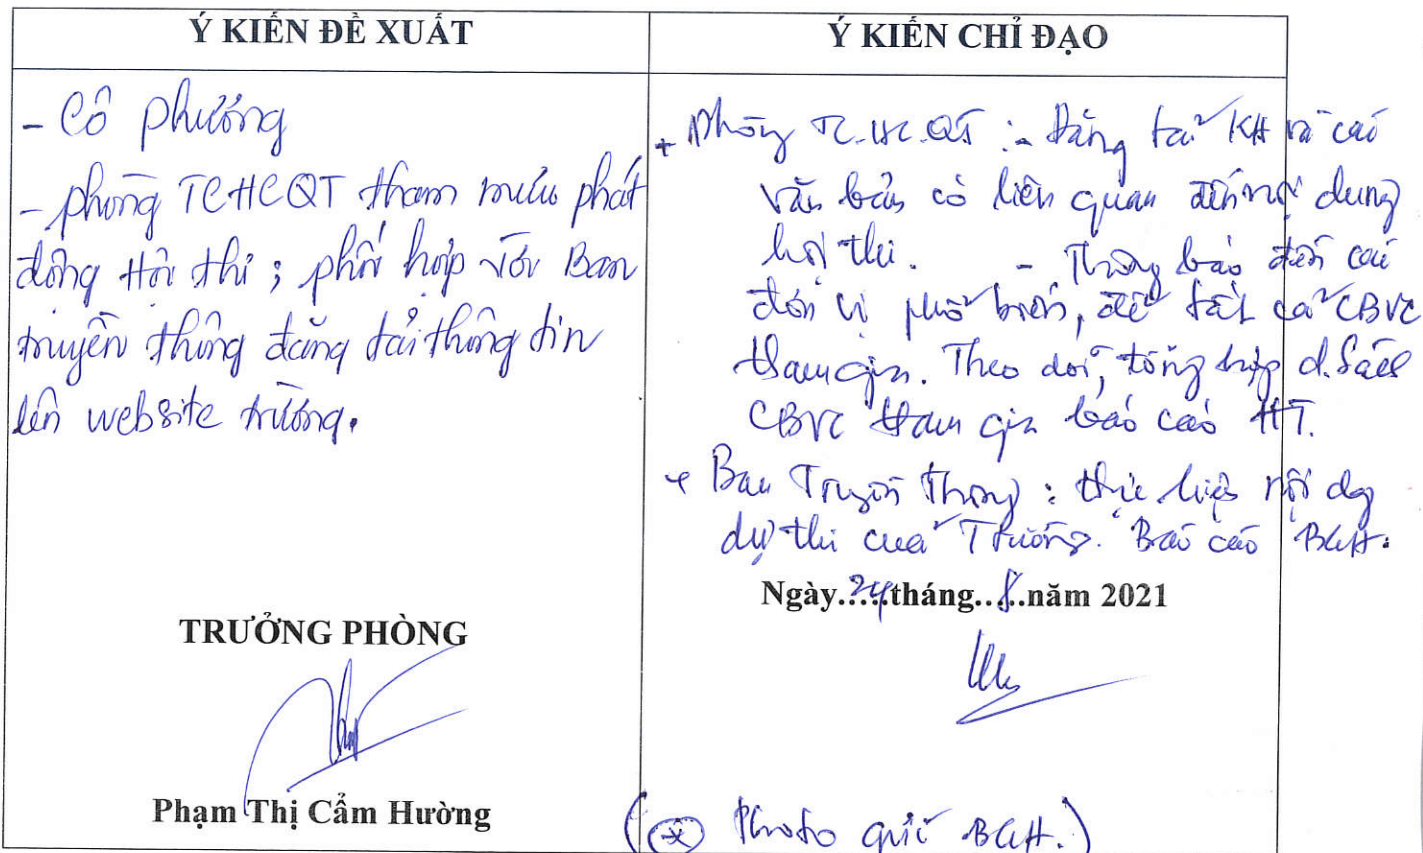 Ý KIẾN ĐỀ XUẤT
- Cô Phương
- phòng TCHCQT tham mưu phát
động Hội thi ; phối hợp với Ban
truyền thông đăng tải thông tin
lên website trường.
TRƯỞNG PHÒNG
Phạm Thị Cẩm Hường
Ý KIẾN CHỈ ĐẠO
+ Phòng TC.HC.QT : - Đăng tải KH và các
văn bản có liên quan đến nội dung
hội thi. - Thông báo đến các
đơn vị phổ biến, để tất cả CBVC
tham gia. Theo dõi, tổng hợp d.sách
CBVC tham gia báo cáo HT.
+ Ban Truyền thông : thực hiện nội dg
dự thi của Trường. Báo cáo BGH.
Ngày..24..tháng..8..năm 2021
( * Photo gửi BGH.)